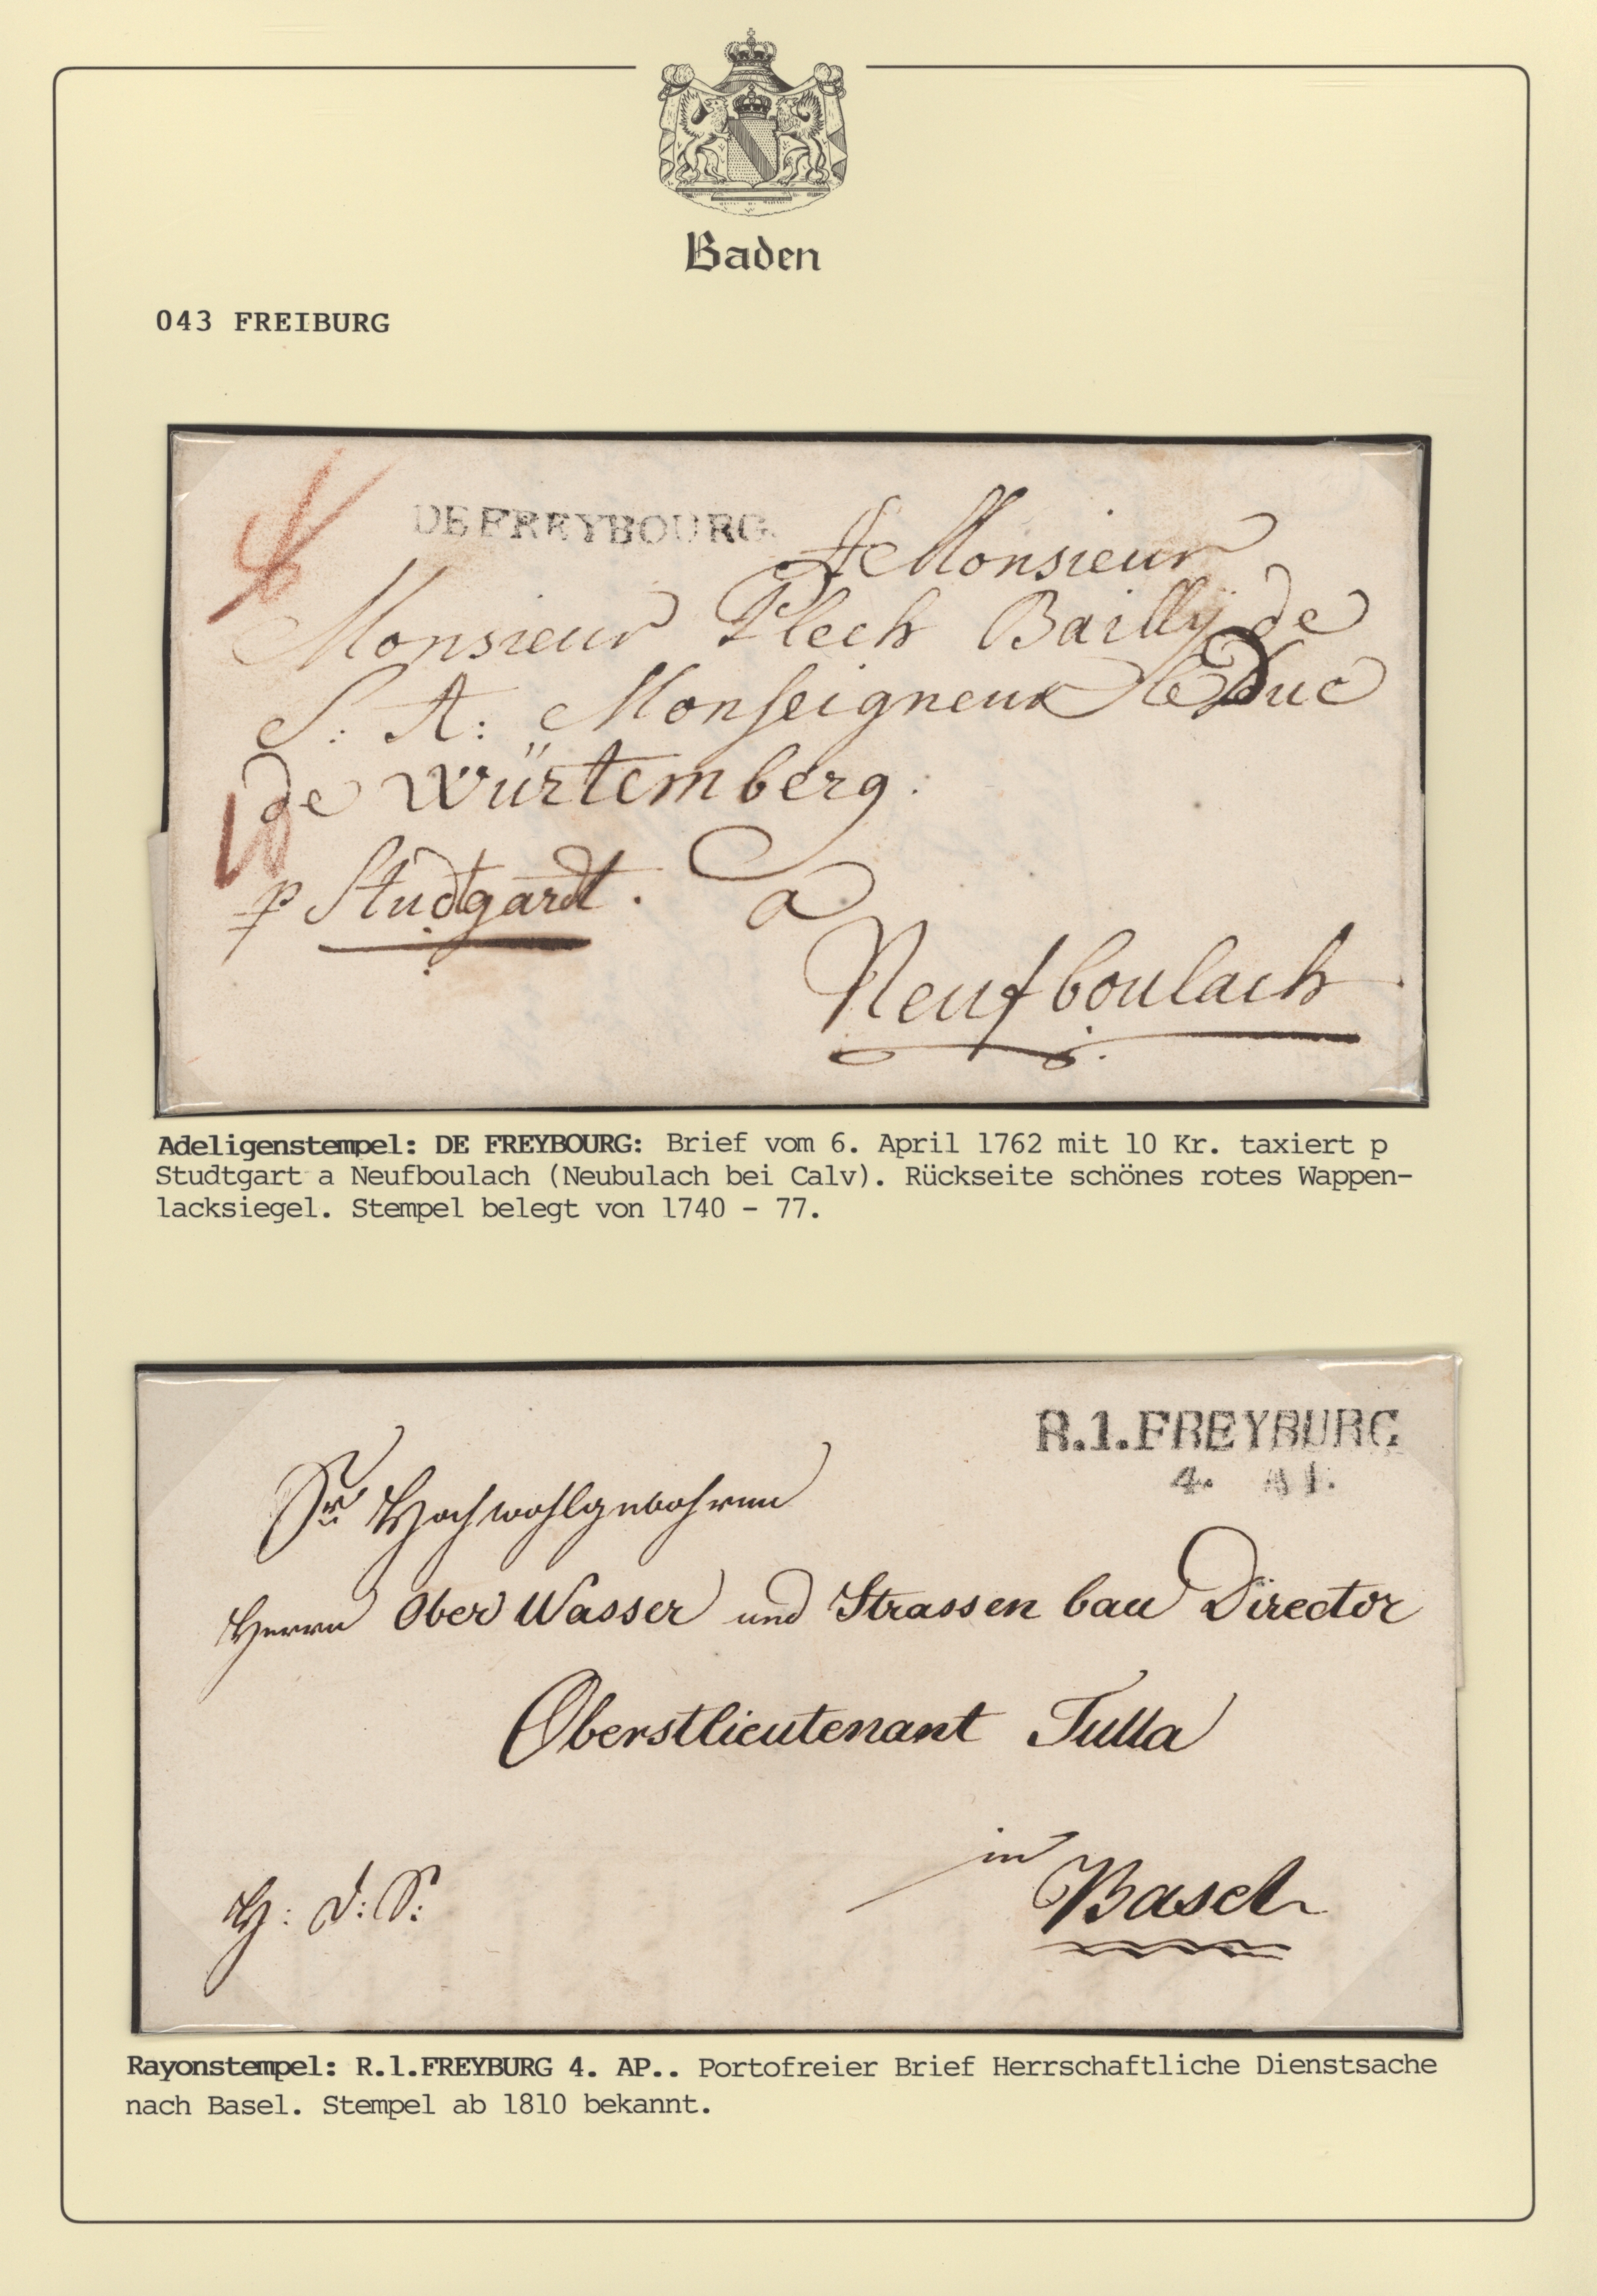 Baden
043 FREIBURG
DE FREYBOURG.
A Monsieur
Monsieur Plech Bailly de
S: A: Monseigneur le Duc
de Würtemberg.
p Studtgardt. a
Neufboulach
Adeligenstempel: DE FREYBOURG: Brief vom 6. April 1762 mit 10 Kr. taxiert p
Studtgart a Neufboulach (Neubulach bei Calv). Rückseite schönes rotes Wappen-
lacksiegel. Stempel belegt von 1740 - 77.
R.1.FREYBURG
4.
Sr Hochwohlgebohren
Herrn Ober Wasser und Strassen bau Director
Oberstlieutenant Tulla
in
Basel
H: D: S:
Rayonstempel: R.1.FREYBURG 4. AP.. Portofreier Brief Herrschaftliche Dienstsache
nach Basel. Stempel ab 1810 bekannt.